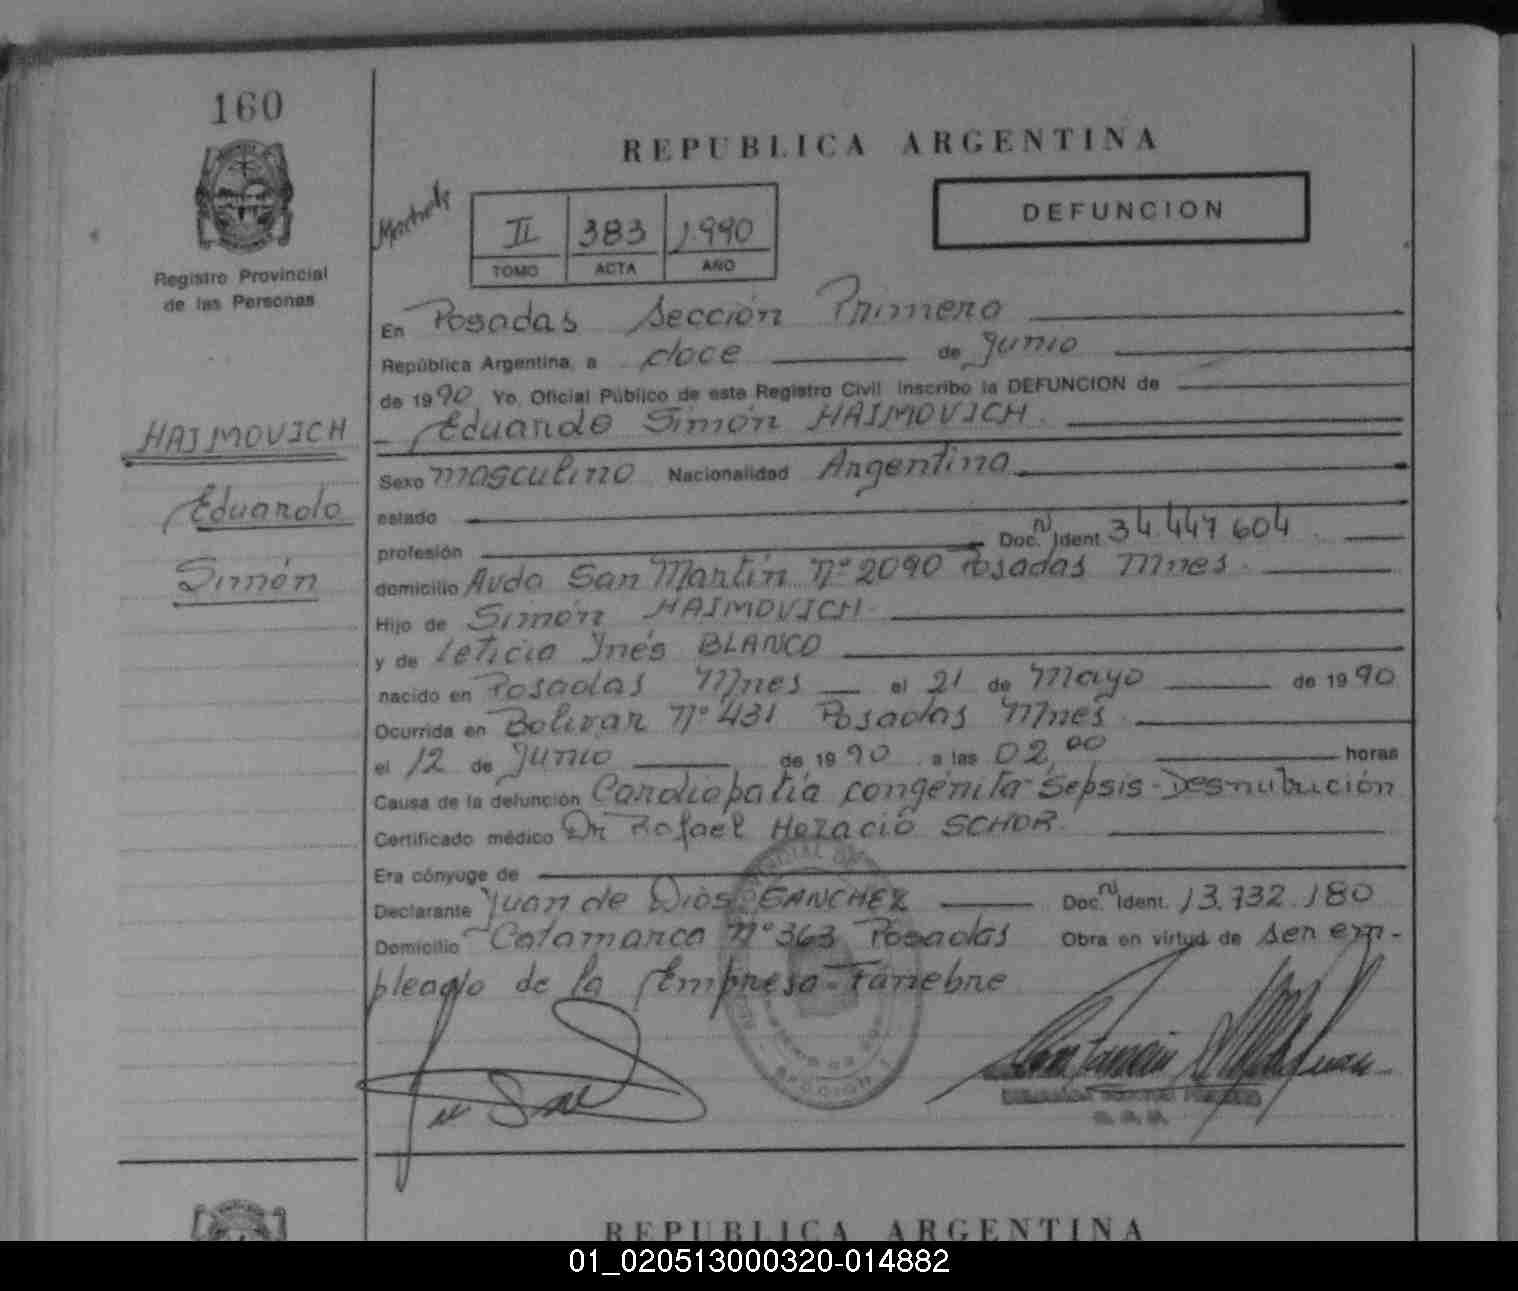 160
REPUBLICA ARGENTINA
Registro Provincial
de las Personas
II 383 1.990
TOMO ACTA AÑO
DEFUNCION
HAIMOVICH
Eduardo
Simón
En Posadas Sección Primera
República Argentina, a doce de Junio
de 1990 Yo, Oficial Público de este Registro Civil inscribo la DEFUNCION de
Eduardo Simón HAIMOVICH.
Sexo masculino Nacionalidad Argentina
estado
profesión Doc. N Ident 34.447 604
domicilio Avda San Martín Nº 2090 Posadas Mnes.
Hijo de Simón HAIMOVICH
y de Leticia Ynés BLANCO
nacido en Posadas Mnes el 21 de Mayo de 1990
Ocurrida en Bolivar Nº 431 Posadas Mnes.
el 12 de Junio de 1990 a las 02,00 horas
Causa de la defunción Cardiopatía congénita-Sepsis-Desnutrición
Certificado médico Dr Rafael Horacio SCHOR.
Era cónyuge de
Declarante Juan de Dios SANCHEZ Doc. N Ident. 13.732.180
Domicilio Catamarca Nº 363 Posadas Obra en virtud de ser em-
pleado de la Empresa Fúnebre
REPUBLICA ARGENTINA
01_020513000320-014882